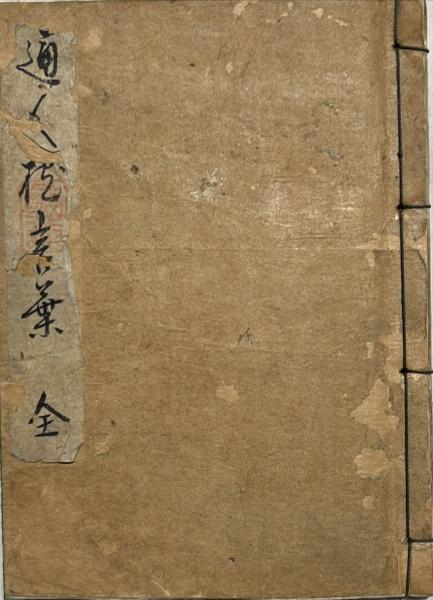 通人枕言葉 全